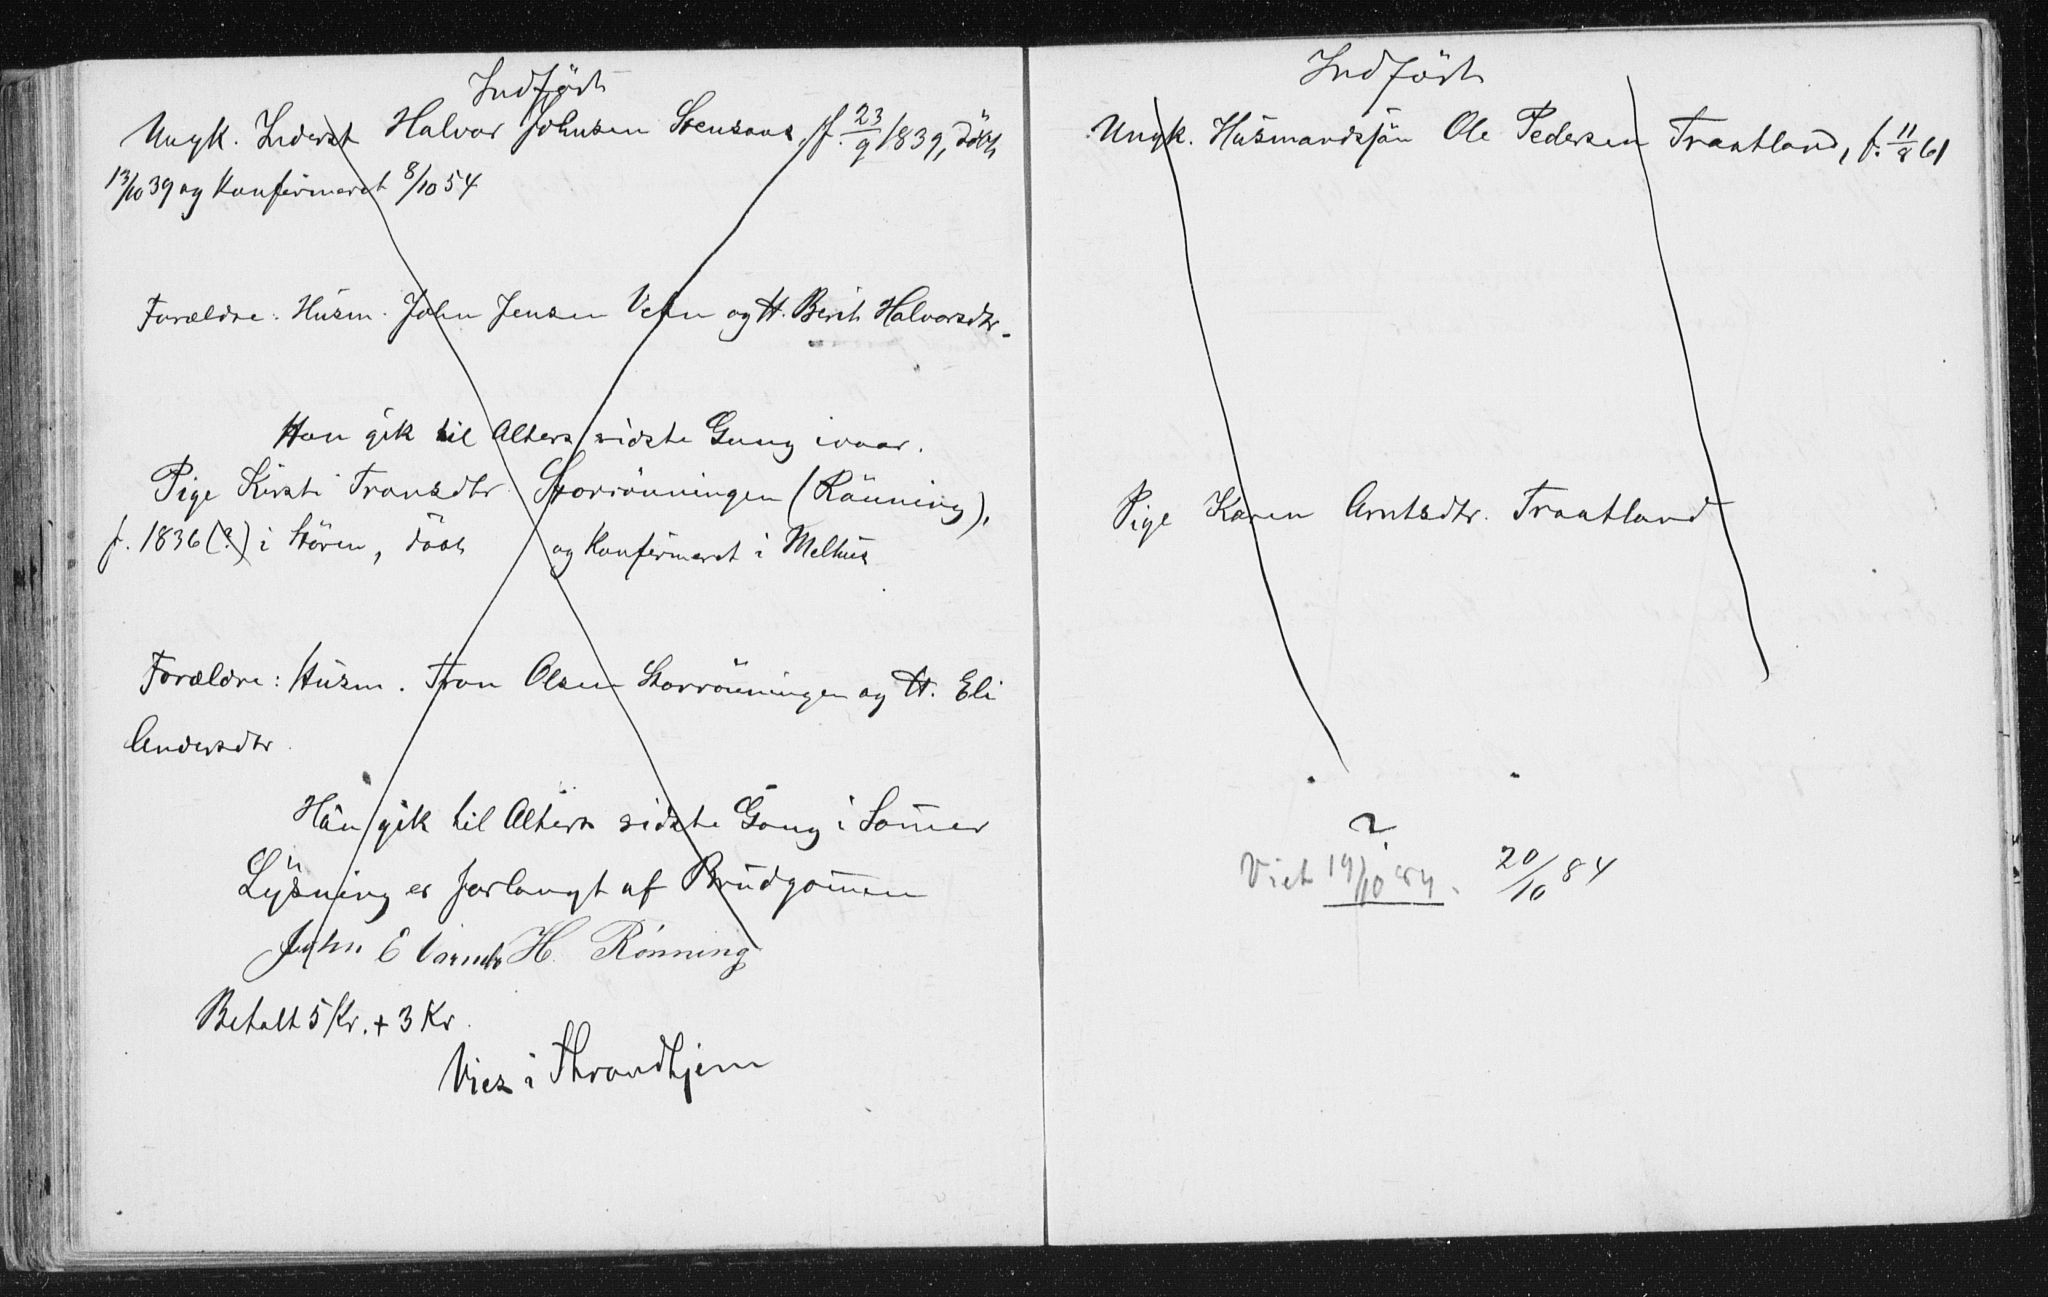 Indført
Ungk. Inderst Halvor Johnsen Stensaas, f. 23/9 1839, döbt
13/10 39 og konfirmeret 8/10 54
Forældre: Husm. John Jensen og H. Berit Halvorsdtr.
Han gik til Alters sidste Gang ivaar.
Pige Kirsti Tronsdtr. Storrönningen (Rönning),
f. 1836 (?) i Stören, döbt og konfirmeret i Melhus
Forældre: Husm. Tron Olsen Storrönningen og H. Eli
Andersdtr.
Hun gik til Alters sidste Gang i Som̄er
Lysning er forlangt af Brudgom̄en
John E H. Rönning
Betalt 5 Kr. + 3 Kr.
Vies i Throndhjem
Indført
Ungk. Husmandssön Ole Pedersen Traatland, f. 11/8 61
Pige Karen Arntsdtr. Traatland
?
Viet 19/10 84. 20/10 84